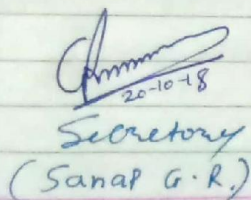 20-10-18
Secretory
(Sanap G.R.)